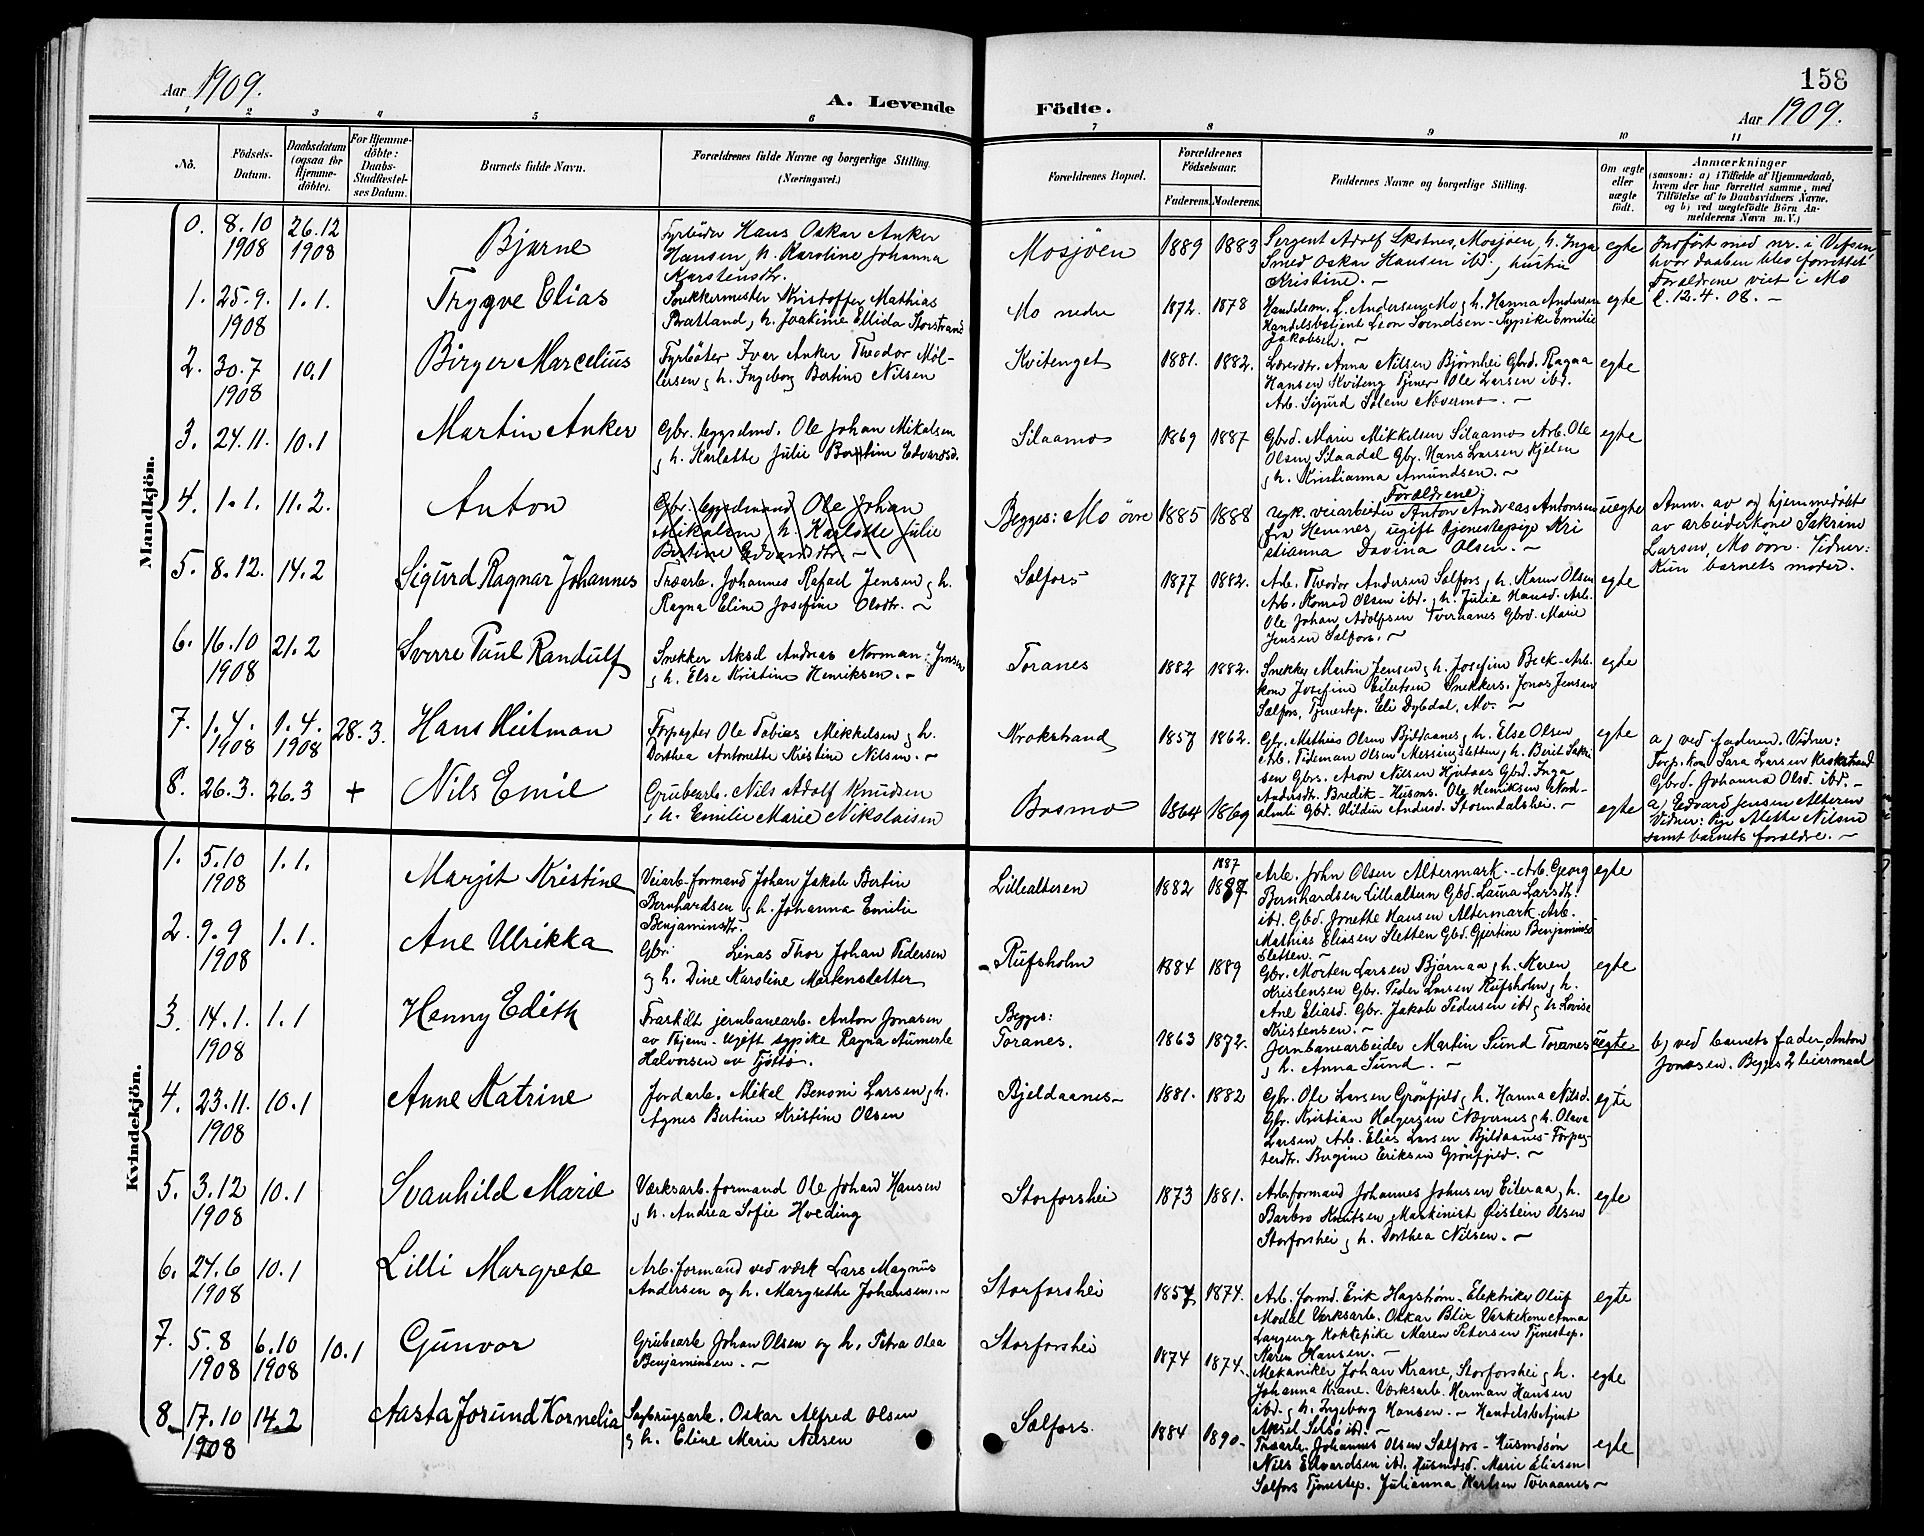 158
Aar 1909.
A. Levende Födte.
Aar 1909.
1 2 3 4 5 6 7 8 9 10 11
No.
Födsels-Datum.
Daabsdatum (ogsaa for Hjemmedöbte).
For Hjemmedöbte: Daabs-Stadfæstelses Datum.
Barnets fulde Navn.
Forældrenes fulde Navne og borgerlige Stilling.
(Næringsvei.)
Forældrenes Bopæl.
Forældrenes Födselsaar.
Faderens. Moderens.
Faddernes Navne og borgerlige Stilling.
Om ægte eller uægte födt.
Anmærkninger
(saasom: a) i Tilfælde af Hjemmedaab, hvem der har forrettet samme, med Tilföielse af to Daabsvidners Navne, og b) ved uægtefödte Börn Anmelderens Navn m. V.)
Mandkjön.
0. 8.10 1908 26.12 1908 Bjarne
Fyrböder Hans Oskar Anker
Hansen, h. Karoline Johanna
Karstensdtr.
Mosjöen 1889 1883
Sergent Adolf Skotnes, Mosjöen, h. Inga
Smed Oskar Hansen ibd., hustru
Kristine. –
egte
Indfört med nr. i Vefsen,
hvor daaben blev forrettet
Forældrene viet i Mo
12.4.08. –
1. 25.9. 1908 1.1. Trygve Elias
Snekkermester Kristoffer Mathias
Bratland, h. Joakime Ellida Storstrand
Mo nedre 1872. 1878
Handelsm. L. Andersen, Mo, h. Hanna Andersen
Handelsbetjent Leon Svendsen – Sypike Emilie
Jakobsen. –
egte
2. 30.7 1908 10.1 Birger Marcelius
Fyrböter Ivar Anker Theodor Möl-
lersen, h. Ingeborg Bertine Nilsen
Kvitenget 1881. 1882.
Anna Nilsen Bjørnhei Gbrd. Ragna
Hansen Kviteng Tjener Ole Larsen ibd.
Arb. Sigurd Solem Nævermo. –
egte
3. 24.11. 10.1 Martin Anker
Gbr. bygselmd. Ole Johan Mikalsen
h. Karlotte Julie Bertine Edvardsd.
Silaamo 1869 1887
Gbrd. Marie Mikkelsen Silaamo Arb. Ole
Olsen Silaadal Gbr. Hans Larsen Kjelen
h. Kristianna Amundsen. –
egte
4. 1.1. 11.2. Anton
Gbr. bygselmand Ole Johan
Mikalsen, h. Karlotte Julie
Bertine Edvardsdtr. –
Begges: Mo övre 1885 1888
Forældrene:
ugk. veiarbeider Anton Andreas Antonsen
fra Hemnes, ugift tjenestepige Kri
stianna Davina Olsen. –
uegte
Anm. av og hjemmedöbt
av arbeiderkone Sakrine
Larsen, Mo övre. Vidner:
Kun barnets moder.
5. 8.12. 14.2 Sigurd Ragnar Johannes
Træarb. Johannes Rafael Jensen, h.
Ragna Eline Josefine Olsdtr. –
Selfors 1877 1882.
Arb. Theodor Andersen Selfors, h. Karen Olsen
Arb. Konrad Olsen ibd., h. Julie Hansd. Arb.
Ole Johan Adolfsen Tveraanes Gbrd. Marie
Jensen Selfors. –
egte
6. 16.10 1908 21.2 Sverre Paul Randulf
Snekker Aksel Andreas Norman Jensen
h. Else Kristine Henriksen. –
Toranes 1882 1882.
Snekker Martin Jensen, h. Josefine Beck – Arb.
kone Josefine Eilertsen Snekkers. Jonas Jensen
Selfors, Tjenestep. Eli Dybdal, Mo. –
egte
7. 1.4. 1908 1.4. 1908 28.3. Hans Hiitman
Forpagter Ole Tobias Mikkelsen, h.
Dorthea Antonette Kristine Nilsen. –
Krokstrand 1857 1862.
Gbr. Mathias Olsen Bjeldaanes, h. Else Olsen
Arb. Tideman Olsen Messingsletten, h. Berit Sakri
sen Gbrs. Aron Nilsen Hjertaas Gbrd. Inga
Andersdtr. Bredik – Husms. Ole Henriksen Nord-
almli Gbrd. Hildur Andersd. Stormdalshei. –
egte
a) ved faderen. Vidner:
Forp. kone Sara Larsen Krokstrand
Gbrd. Johanna Olsd. ibd. –
8. 26.3. 26.3 + Nils Emil
Grubearb. Nils Adolf Knudsen
h. Emilie Marie Nikolaisen
Bosmo 1864 1869
egte
a) Edvard Jensen Alteren
Vidner: Pige Alette Nilsen
samt barnets forældre. –
Kvindekjön.
1. 5.10 1908 1.1. Margit Kristine
Veiarb. formand Johan Jakob Bertin
Bernhardsen, h. Johanna Emilie
Benjaminsdtr.
Lillealteren 1882 1887 1887
Arb. John Olsen Altermark – Arb. Georg
Bernhardsen Lillealteren Gbd. Laura Larsdtr.
ibd. Gbd. Jonette Hansen Altermark Arb.
Mathias Eliasen Sletten Gbd. Gjertine Benjaminsd
Sletten. –
egte
2. 9.9 1908 1.1. Ane Ulrikka
Gbr. Linas Thor Johan Pedersen
og h. Dine Karoline Mortensdatter
Rufsholm 1884 1889
Gbr. Morten Larsen Bjørnaa, h. Karen
Kristensen Gbr. Peder Larsen Rufsholm, h.
Ane Eliasd. Gbr. Jakob Pedersen ibd., h. Lovise
Kristensen. –
egte
3. 14.1. 1908 1.1 Henny Edith
Fraskilt jernbanearb. Anton Jonasen
av Thjem. Ugift sypike Ragna
Halvorsen av Tjöttö.
Begges:
Toranes. 1863 1872.
Jernbanearbeider Martin Sund Toranes
h. Anna Sund. –
uegte
b) ved barnets fader Anton
Jonasen. Begges 2 leiermaal
4. 23.11. 1908 10.1 Anne Katrine
Jordarb. Mikal Benoni Larsen, h.
Agnes Bertine Kristine Olsen
Bjeldaanes – 1881. 1882
Gbr. Ole Larsen Grönfjeld, h. Hanna Nilsd.
Gbr. Kristian Holgersen Nævernes, h. Olava
Larsen, Arb. Elias Larsen, Bjeldaanes – Forpag-
terdtr. Bergine Eriksen Grönfjeld. –
egte
5. 3.12 1908 10.1 Svanhild Marie
Værksarb. formand Ole Johan Hansen
h. Andrea Sofie Hveding
Storforshei 1873 1881.
Arb. formand Johannes Johnsen Eiteraa, h.
Barbro Knutsen, Maskinist Øistein Olsen
Storforshei, h. Dorthea Nilsen. –
egte
6. 24.6 1908 10.1 Lilli Margrete
Arb. formand ved værk Lars Magnus
Andersen og h. Margrethe Johansen. –
Storforshei 1857 1874.
Arb. formd. Erik Hagstrøm – Elektriker Oluf
Modal Værksarb. Oskar Blix Værkskone Anna
Laugeng Kokkepike Maren Petersen Tjenestep.
Karen Hansen. –
egte
7. 5.8 1908 6.10 1908 10.1 Gunvor
Grubearb Johan Olsen og h. Petra Olea
Benjaminsen. –
Storforshei 1874 1874.
Mekaniker Johan Krane, Storforshei, h.
Johanna Krane. Værksarb. Herman Hansen
ibd., h. Ingeborg Hansen. – Handelsbetjent
Aksel Selsö ibd. –
egte
8. 17.10 1908 14.2 Aasta Jorund Kornelia
Sagbrugsarb. Oskar Alfred Olsen
h. Eline Marie Nilsen
Selfors. 1884 1890.
Træarb. Johannes Olsen Selfors – Husmdsön
Nils Edvardsen ibd. Husmdsd. Marie Eliasen
Selfors Tjenestep. Julianna Karlsen Tveraanes –
egte